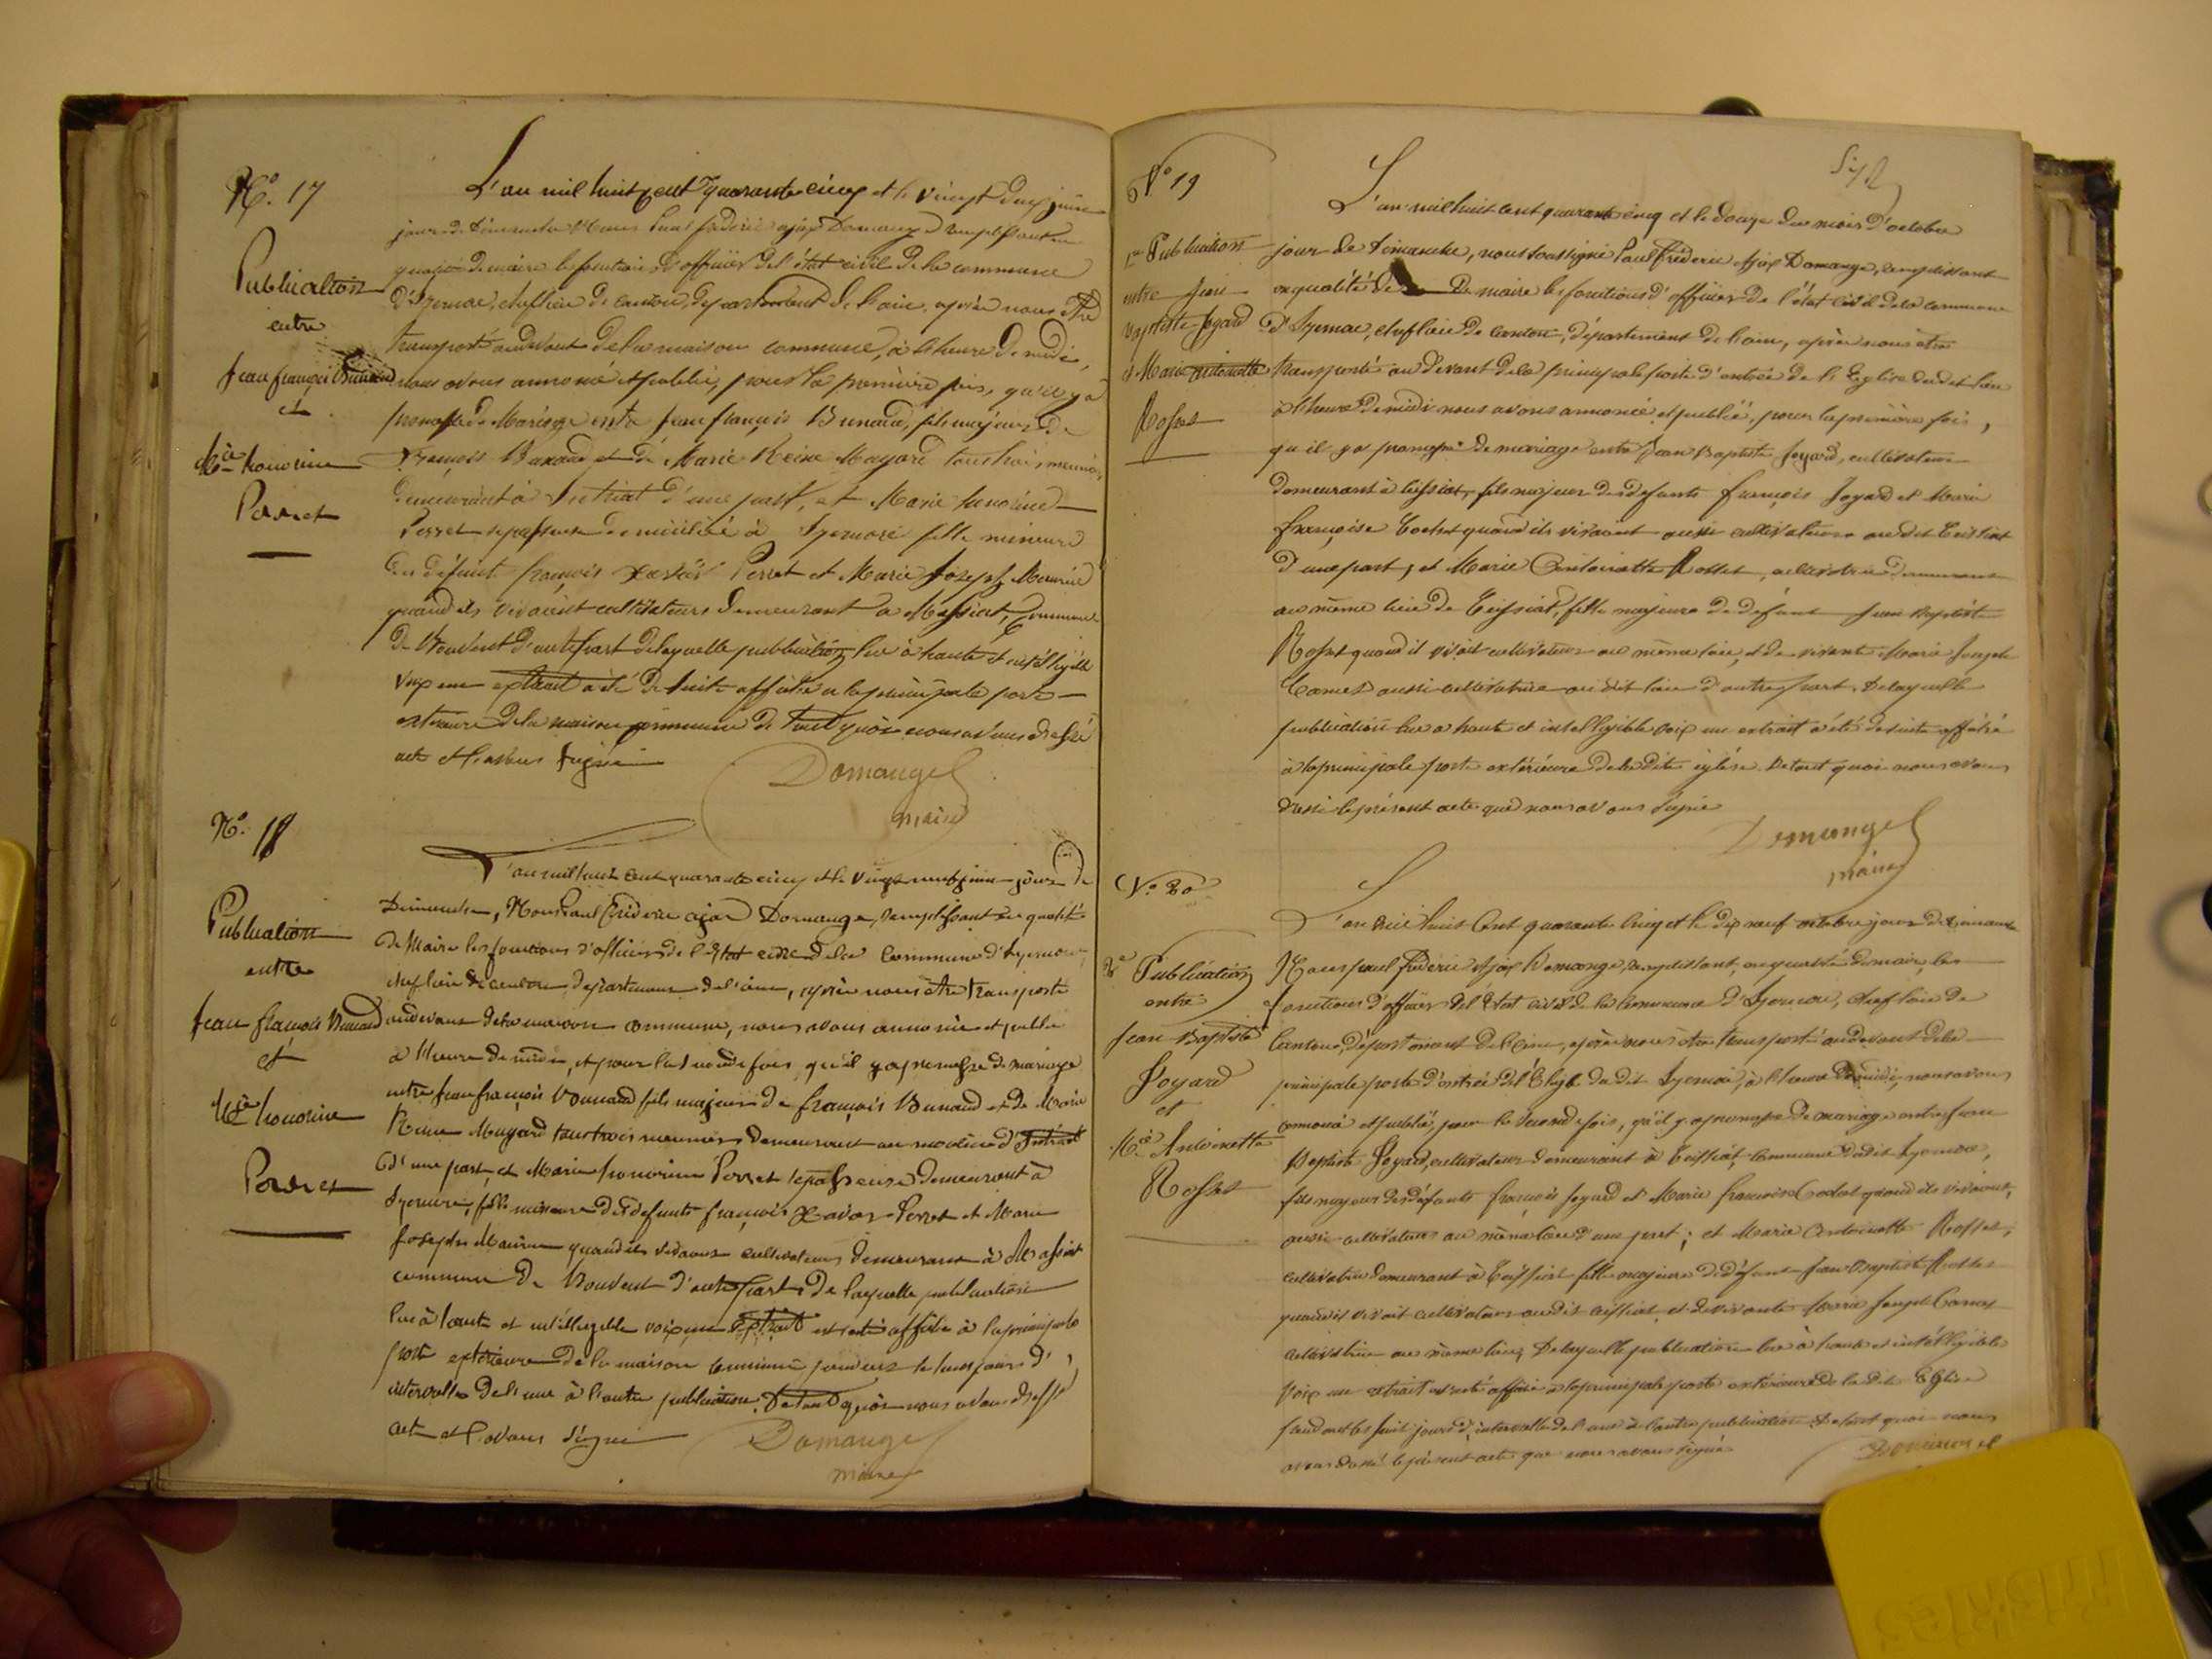 N.o 17
Publication
entre
Jean françois Bunaud
et
M.ie honorine
Perret
L'an mil huit cent quarante cinq et le vingt deux juin
jour de dimanche Nous Paul frédéric ajax Domange remplissant en
qualité de maire les fonctions d'officier de l'état civil de la commune
d'Izernore, cheflieu de canton, département de l'ain, après nous être
transporté audevant de la maison commune, à l'heure de midi,
nous avons annoncé et publié, pour la première fois, qu'il y a
promesse de Mariage entre Jean françois Bunaud, fils majeur de
François Bunaud et de Marie Reine Mugard tous trois meuniers
demeurant à Intriat d'une part, et Marie honorine
Perret repasseuse domiciliée à Izernore fille mineure
des défunt françois xavier Perret et Marie Joseph
quand ils vivaient cultivateurs demeurant à Massiat, Commune
de Bouvent d'autre part de laquelle publication lue à haute et intelligible
voix un extrait a été de suite affiché a la principale porte
extérieure de la maison commune de tout quoi nous avons dressé
acte et l'avons signé
Domange
maire
N.o 18
Publication
entre
Jean françois Bunaud
et
M.ie honorine
Perret
L'an mil huit cent quarante cinq et le vingt neuf juin jour de
Dimanche, Nous Paul frédéric ajax Domange, remplissant en qualité
de Maire les fonctions d'officier de l'état civil de la Commune d'Izernore,
cheflieu de canton département de l'ain, après nous être transporté
audevant de la maison commune, nous avons annoncé et publié
a l'heure de midi, et pour la seconde fois, qu'il y a promesse de mariage
entre Jean françois Bunaud fils majeur de françois Bunaud et de Marie
Reine Mugard tous trois meuniers demeurant au moulin d'Intriat
d'une part, et Marie honorine Perret repasseuse demeurant à
Izernore, fille mineure des défunts françois Xavier Perret et Marie
Joseph quand ils vivaient cultivateurs demeurant à Massiat
commune de Bouvent d'autre part, de laquelle publication
lue à haute et intelligible voix un extrait est resté affiché à la principale
porte extérieure de la maison commune pendant les huit jours d'
intervalle de l'une à l'autre publication. De tout quoi nous avons dressé
acte et l'avons signé
Domange
maire
N.o 19
1.re Publication
entre Jean
Baptiste Joyard
et Marie antoinette
Rosset
L'an mil huit cent quarante cinq et le douze du mois d'octobre
jour de dimanche, nous soussigné Paul frédéric Ajax Domange, remplissant
en qualité de de maire les fonctions d'officier de l'état civil de la commune
d'Izernore, cheflieu de canton, département de l'ain, après nous être
transporté au devant de la principale porte d'entrée de l'Eglise dudit lieu
à l'heure de midi nous avons annoncé et publié, pour la première fois,
qu'il y a promesse de mariage entre Jean Baptiste Joyard, cultivateur
demeurant à Ceissiat, fils majeur des défunts françois Joyard et Marie
françoise Cochet quand ils vivaient aussi cultivateurs au dit Ceissiat
d'une part, et Marie Antoinette Rosset, cultivatrice demeurant
au même lieu de Ceissiat, fille majeure de défunt Jean Baptiste
Rosset quand il vivait cultivateur au même lieu, et de vivante Marie Joseph
aussi cultivatrice au dit lieu d'autre part. De laquelle
publication lue a haute et intelligible voix un extrait a été de suite affiché
à la principale porte extérieure de la dite église. De tout quoi nous avons
dressé le présent acte que nous avons signé
Domange
maire
N.o 20
2.e Publication
entre
Jean Baptiste
Joyard
et
M.ie Antoinette
Rosset
L'an mil huit Cent quarante Cinq et le dix neuf octobre jour de dimanche
Nous paul frédéric Ajax Domange, remplissant, en qualité de maire, les
fonctions d'officier de l'état civil de la commune d'Izernore, chef lieu de
Canton, département de l'ain, après nous être transporté au devant de la
principale porte d'entrée de l'Eglise du dit Izernore, à l'heure de midi nous avons
annoncé et publié, pour la seconde fois, qu'il y a promesse de mariage entre Jean
Baptiste Joyard, cultivateur demeurant à Ceissiat, commune dudit Izernore,
fils majeur des défunts françois Joyard et Marie françoise Cochet quand ils vivaient,
aussi cultivateurs au même lieu d'une part ; et Marie Antoinette Rosset,
cultivatrice demeurant à Ceissiat fille majeure de défunt Jean Baptiste Rosset
quand il vivait cultivateur audit Ceissiat, et de vivante Marie Joseph
cultivatrice au même lieu, De laquelle publication lue à haute et intelligible
voix un extrait est resté affiché à la principale porte extérieure de la dite Eglise
pendant les huit jours d'intervalle de l'une à l'autre publication De tout quoi nous
avons dressé le présent acte que nous avons signé
Domange